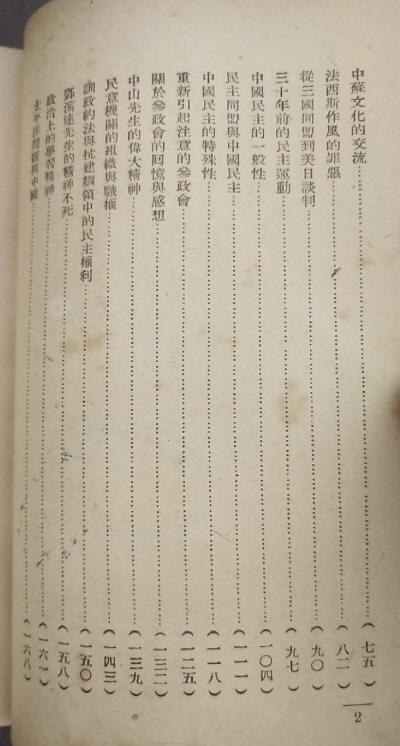 中蘇文化的交流……（七五）
法西斯作風的罪惡……（八二）
從三國同盟到美日談判……（九〇）
三十年前的民主運動……（九七）
中國民主的一般性……（一〇四）
民主同盟與中國民主……（一一一）
中國民主的特殊性……（一一八）
重新引起注意的參政會……（一二五）
關於參政會的回憶與感想……（一三二）
中山先生的偉大精神……（一三九）
民意機關的組織與職權……（一四三）
訓政約法與抗建綱領中的民主權利……（一五〇）
鄧演達先生的精神不死……（一五八）
政治上的學習精神……（一六一）
太平洋問題與中國……（一六八）
2